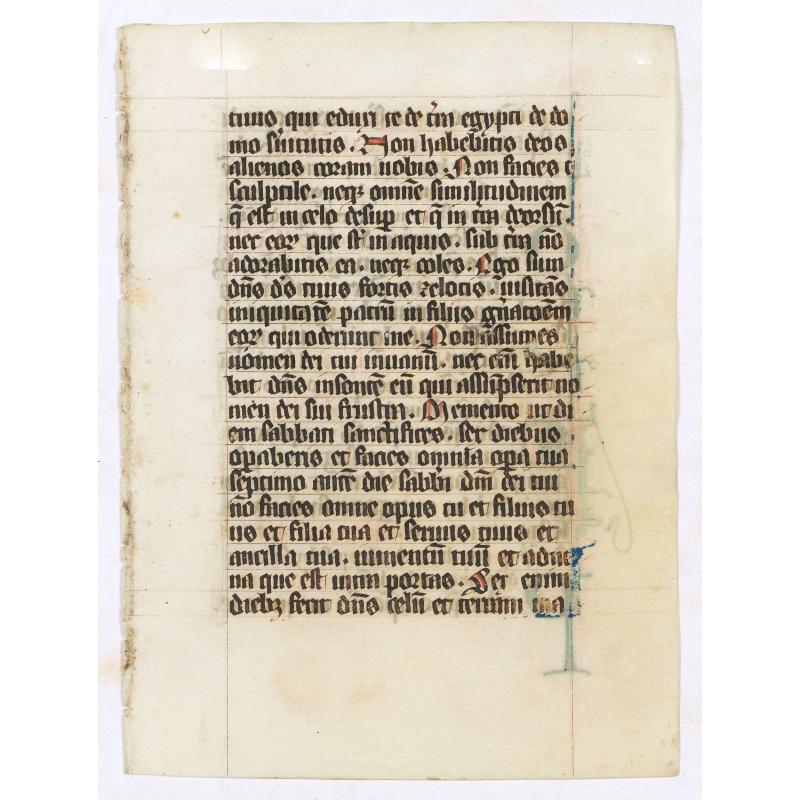 tuus qui eduxi te de t̄ra egypti de do
mo s̄uitutis. Non habebitis deos
alienos coram uobis. Non facies t̄
sculptile. neq; omnē similitudinem
q̄ est in celo desup̄ et q̄ in t̄ra deorsū.
nec eoꝝ que st̄ in aquis. sub t̄ra nō
adorabitis ea. neq; coles. Ego sum
dn̄s ds̄ tuus fortis zelotis. uisitās
iniquitatē patrū in filiis gn̄atōēm
eoꝝ qui oderunt me. Non assumes
nomen dei tui inuanū. nec em̄ habe
bit dn̄s insontē eū qui assūpserit no
mēn dei sui frustra. Memento ut di
em sabbati sanctifices. sex diebus
opaberis et facies omnia opa tua
septimo autē die sabbi dn̄i dei tui
nō facies omne opus tu et filius tu
us et filia tua et seruus tuus et
ancilla tua. iumentū tuū et adue
na que est intra portas. Sex enim
dieb; fecit dn̄s celū et terram ma